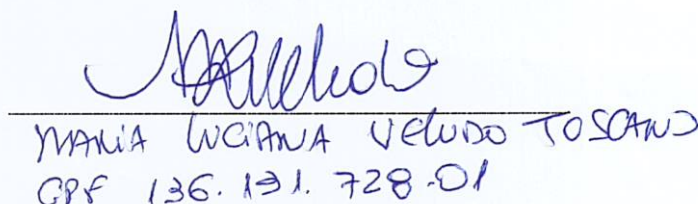 MARIA LUCIANA VELUDO TOSCANO
CPF 136.191.728-01